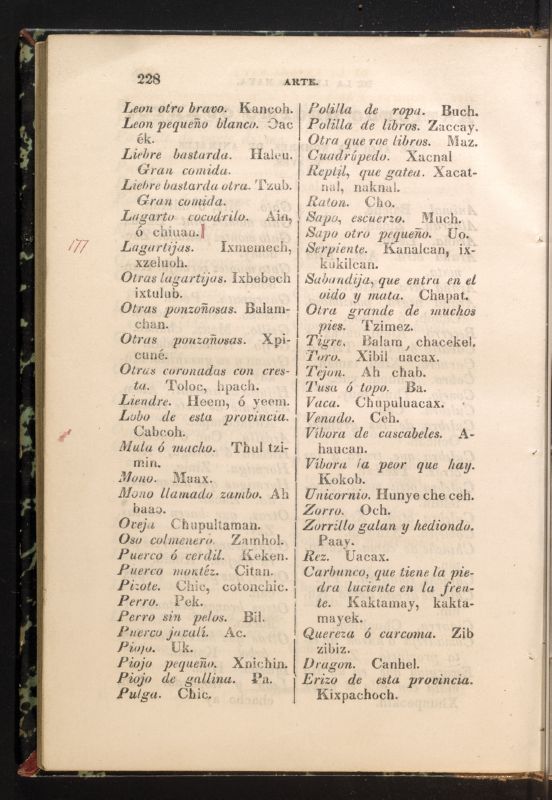 228
ARTE.
Leon otro bravo. Kancoh.
Leon pequeño blanco. Oac
ék.
Liebre bastarda. Haleu.
Gran comida.
Liebre bastarda otra. Tzub.
Gran comida.
Lagarto cocodrilo. Ain,
ó chiuan.
177
Lagartijas. Ixmemech,
xzeluoh.
Otras lagartijas. Ixbebech
ixtulub.
Otras ponzoñosas. Balam-
chan.
Otras ponzoñosas. Xpi-
cuné.
Otras coronadas con cres-
ta. Toloc, hpach.
Liendre. Heem, ó yeem.
Lobo de esta provincia.
Cabcoh.
Mula ó macho. Thul tzi-
min.
Mono. Maax.
Mono llamado zambo. Ah
baao.
Oveja Chupultaman.
Oso colmenero. Zamhol.
Puerco ó cerdil. Keken.
Puerco montéz. Citan.
Pizote. Chic, cotonchic.
Perro. Pek.
Perro sin pelos. Bil.
Puerco javalí. Ac.
Piojo. Uk.
Piojo pequeño. Xnichin.
Piojo de gallina. Pa.
Pulga. Chic.
Polilla de ropa. Buch.
Polilla de libros. Zaccay.
Otra que roe libros. Maz.
Cuadrúpedo. Xacnal
Reptil, que gatea. Xacat-
nal, naknal.
Raton. Cho.
Sapo, escuerzo. Much.
Sapo otro pequeño. Uo.
Serpiente. Kanalcan, ix-
kukilcan.
Sabandija, que entra en el
oido y mata. Chapat.
Otra grande de muchos
pies. Tzimez.
Tigre. Balam, chacekel.
Toro. Xibil uacax.
Tejon. Ah chab.
Tusa ó topo. Ba.
Vaca. Chupuluacax.
Venado. Ceh.
Víbora de cascabeles. A-
haucan.
Víbora la peor que hay.
Kokob.
Unicornio. Hunye che ceh.
Zorro. Och.
Zorrillo galan y hediondo.
Paay.
Rez. Uacax.
Carbunco, que tiene la pie-
dra luciente en la fren-
te. Kaktamay, kakta-
mayek.
Quereza ó carcoma. Zib
zibiz.
Dragon. Canhel.
Erizo de esta provincia.
Kixpachoch.